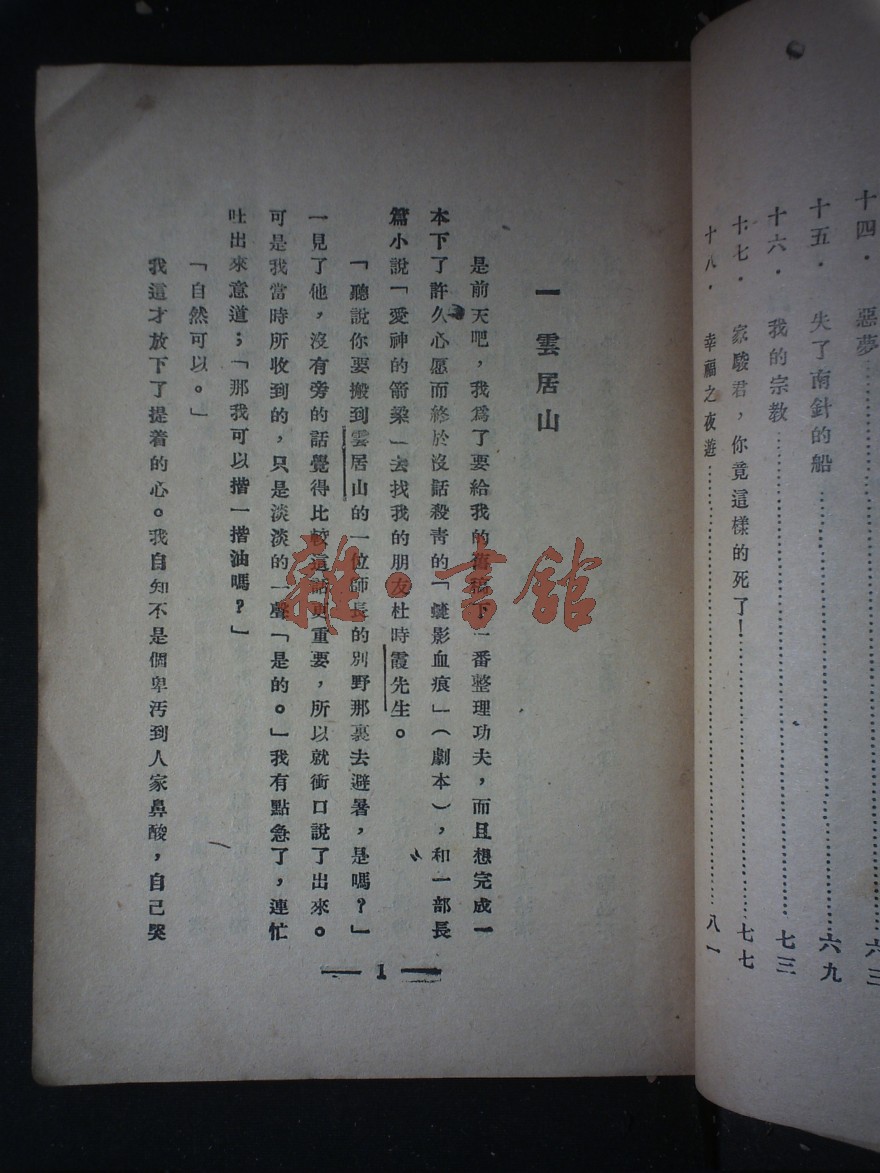 十四．惡夢………………六三
十五．失了南針的船………………六九
十六．我的宗教………………七三
十七．家駿君，你竟這樣的死了！………………七七
十八．幸福之夜遊………………八一
一 雲居山
是前天吧，我爲了要給我的舊稿下一番整理功夫，而且想完成一
本下了許久心愿而終於沒話殺青的「影血痕」（劇本），和一部長
篇小說「愛神的箭梁」去找我的朋友杜時霞先生。
「聽說你要搬到雲居山的一位師長的別野那裏去避暑，是嗎？」
一見了他，沒有旁的話覺得比較這話更重要，所以就衝口說了出來。
可是我當時所收到的，只是淡淡的一聲「是的。」我有點急了，連忙
吐出來意道；「那我可以揩一揩油嗎？」
「自然可以。」
我這才放下了提着的心。我自知不是個卑汚到人家鼻酸，自己哭
— 1 —
雜·書館